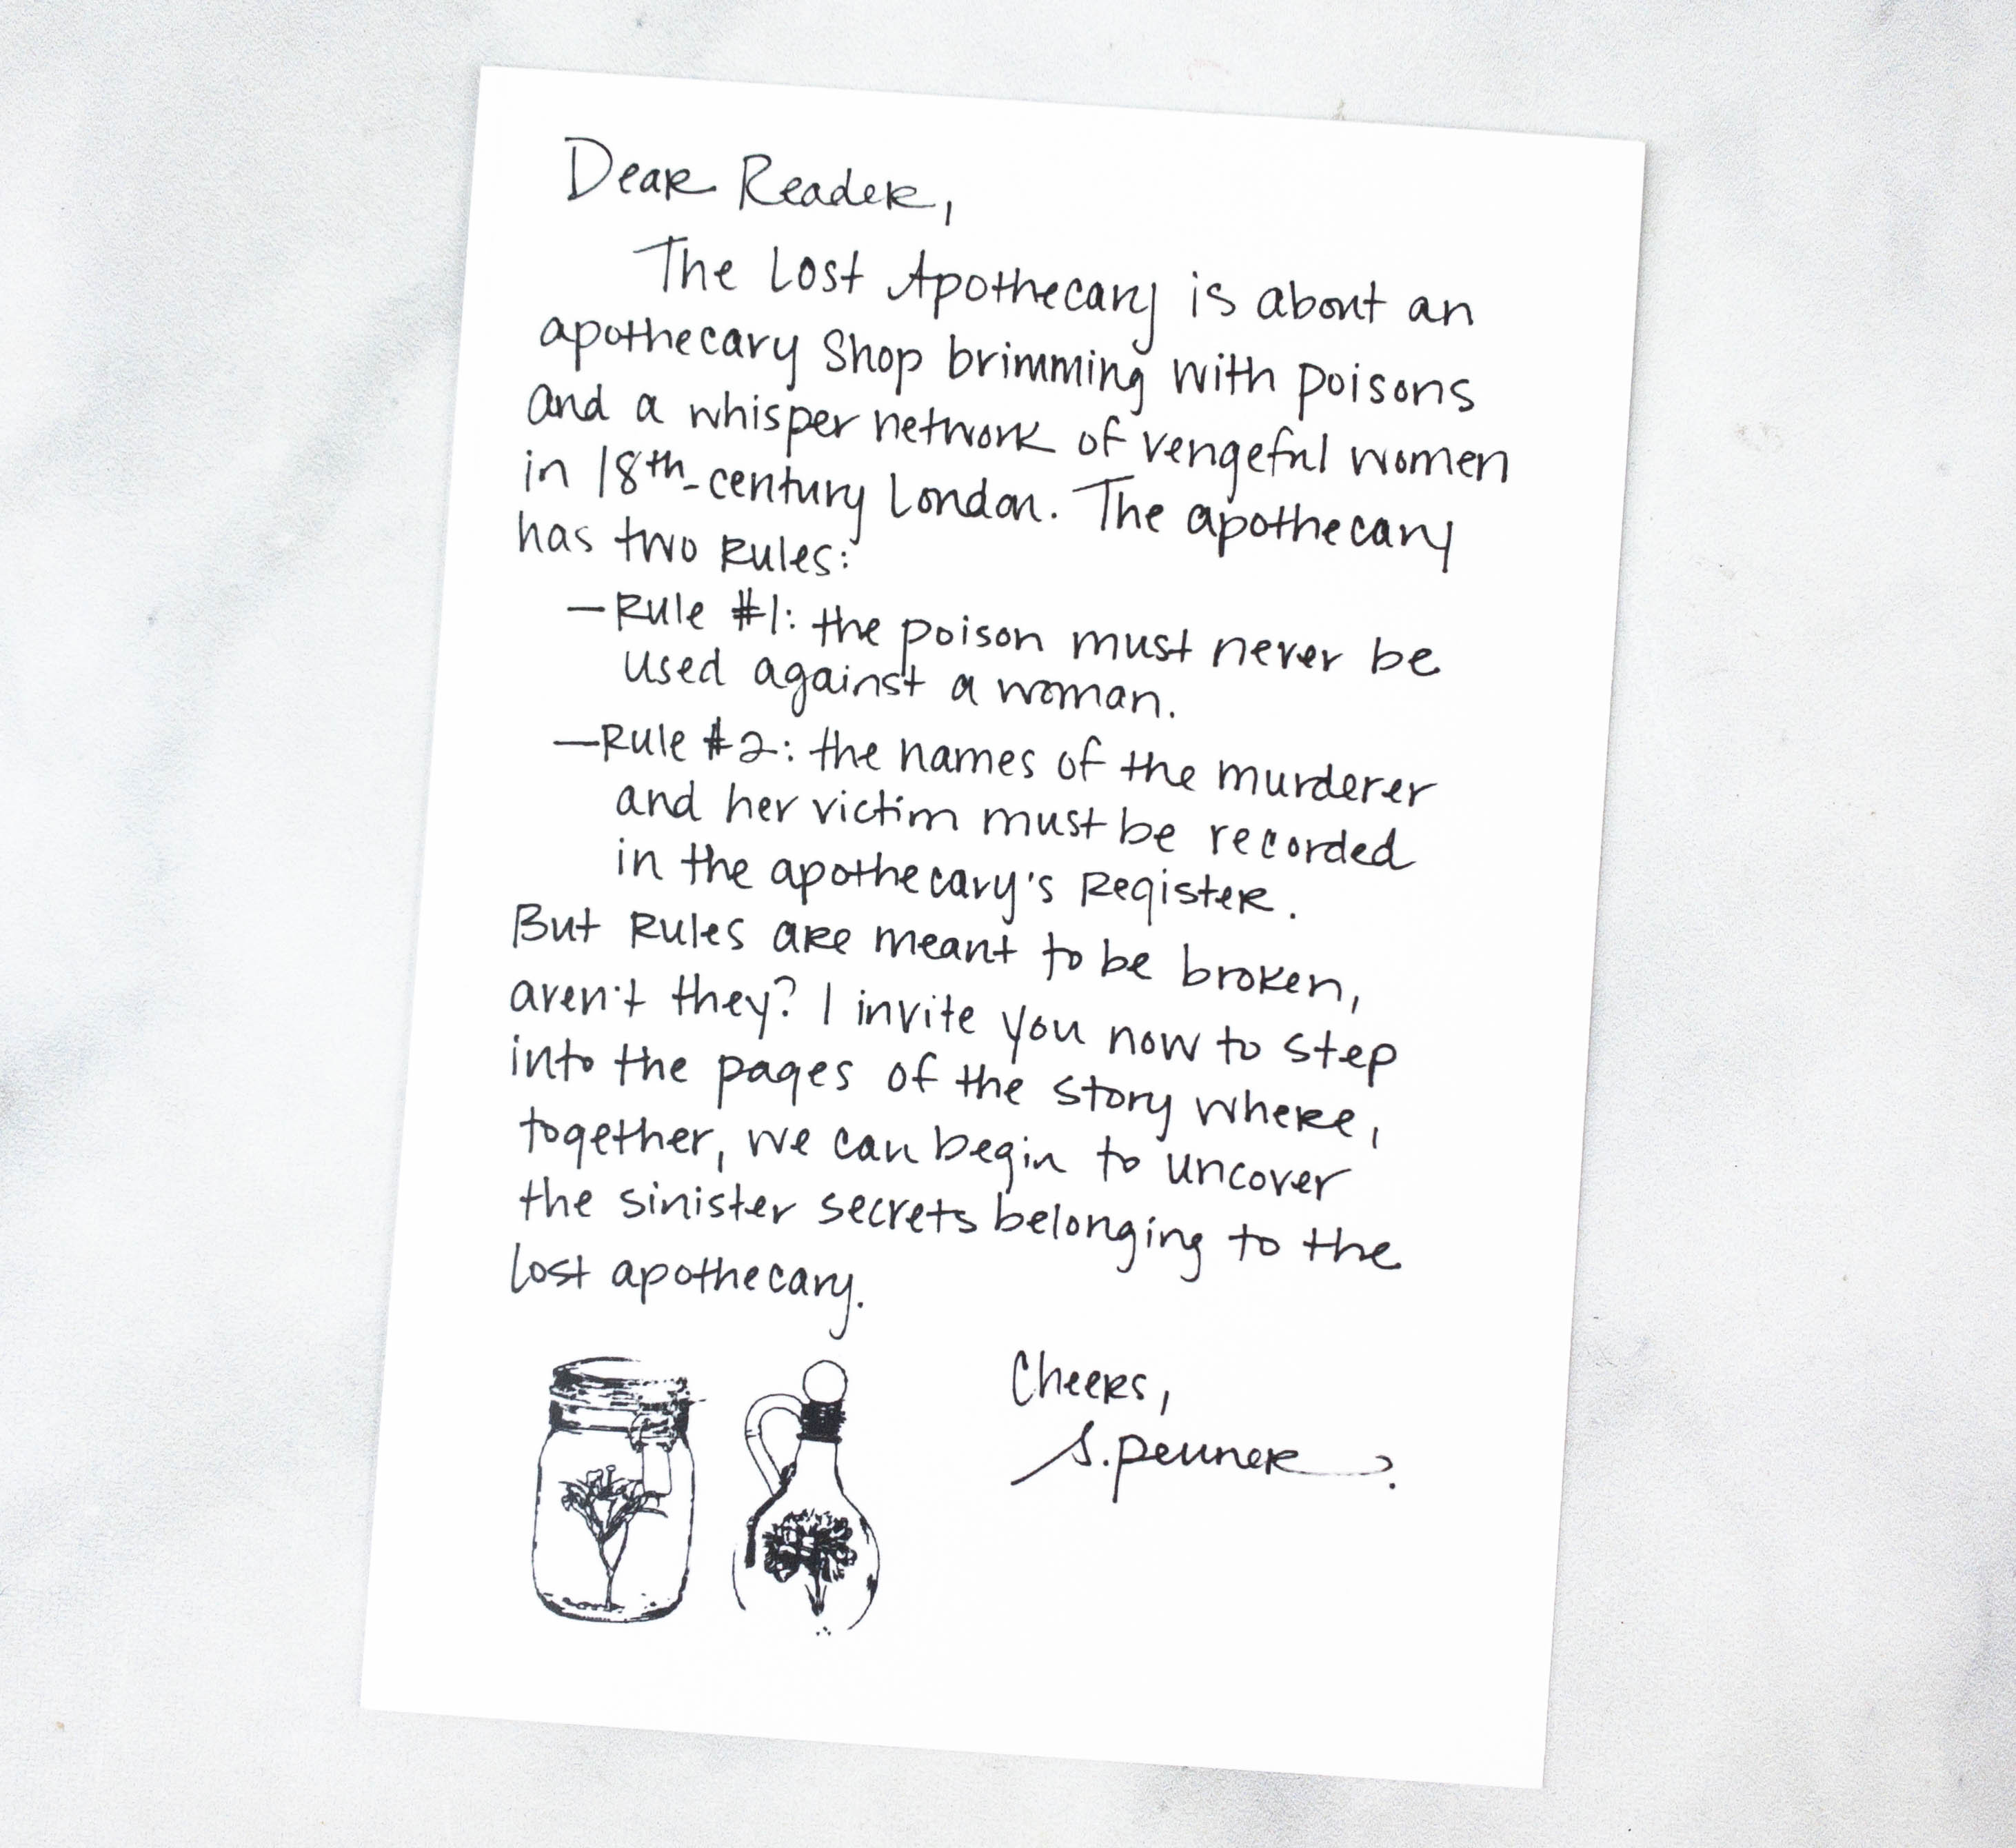 Dear Reader,
The Lost Apothecary is about an
apothecary shop brimming with poisons
and a whisper network of vengeful women
in 18th-century London. The apothecary
has two rules:
—Rule #1: the poison must never be
used against a woman.
—Rule #2: the names of the murderer
and her victim must be recorded
in the apothecary's register.
But rules are meant to be broken,
aren't they? I invite you now to step
into the pages of the story where,
together, we can begin to uncover
the sinister secrets belonging to the
lost apothecary.
Cheers,
S. Penner